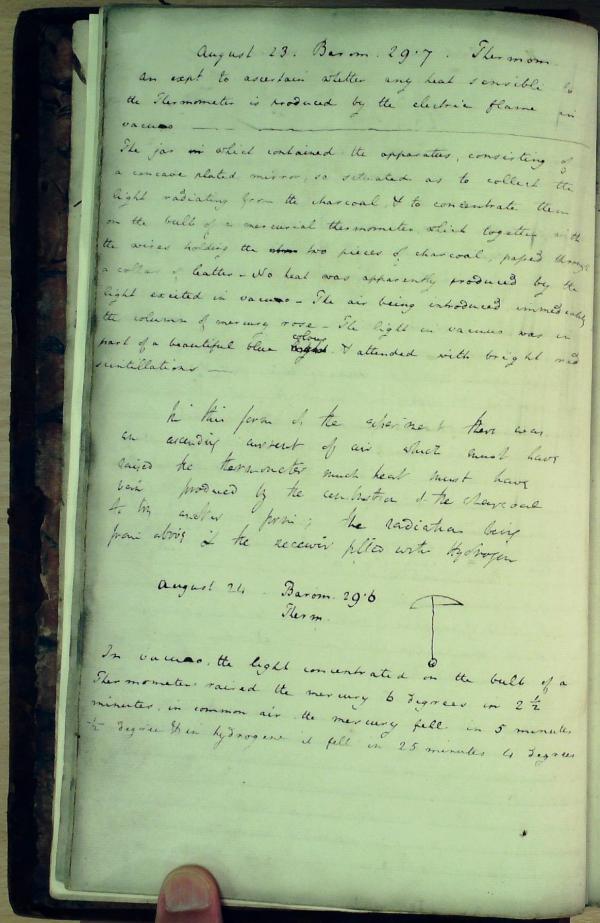 August 23. Barom. 29.7. Thermom.
An expt to ascertain whether any heat sensible to
the Thermometer is produced by the electric flame in
vacuo
The jar in which contained the apparatus, consisting of
a concave plated mirror, so situated as to collect the
light radiating from the charcoal, & to concentrate them
on the bulb of a mercurial thermometer, which together with
the wires holding the two pieces of charcoal, passed through
a collar of leather - No heat was apparently produced by the
light excited in vacuo - The air being introduced immediately
the column of mercury rose - The light in vacuo was in
part of a beautiful blue colour & attended with bright red
scintillations -
In this form of the experiment there was
an ascending current of air which must have
raised the thermometer much heat must have
been produced by the combustion of the charcoal
to try another form; the radiation being
from above & the receiver filled with Hydrogen
August 24 Barom. 29.6
Therm.
In vacuo, the light concentrated on the bulb of a
Thermometer raised the mercury 6 degrees in 2 ½
minutes, in common air the mercury fell in 5 minutes
½ degree & in hydrogene it fell in 25 minutes 4 degrees